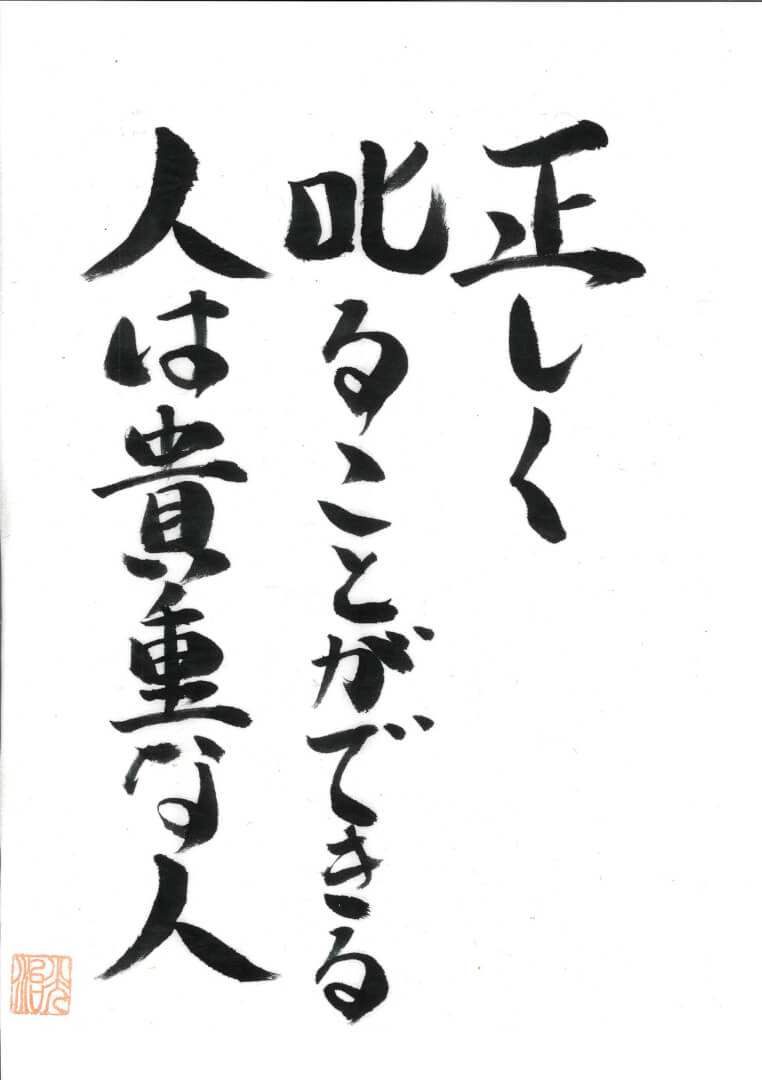 正しく
叱ることができる
人は貴重な人